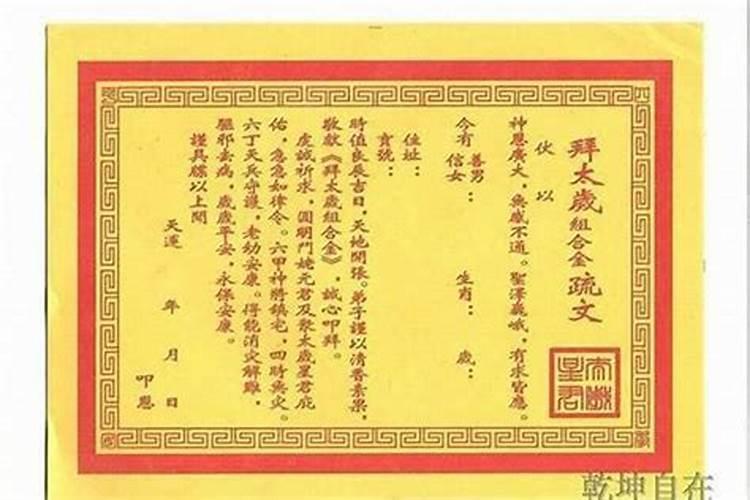 拜太歲組合金疏文
伏以
神恩廣大，無感不通。聖澤巍峨，有求皆應。
今有善男信女： 生肖： 歲：
住址：
寶號：
時值良辰吉日，天地開張。弟子謹以清香素果，
敬獻《拜太歲組合金》，誠心叩拜。
虔誠祈求，圓明斗姥元君及眾太歲星君庇
佑，急急如律令。六甲神將鎮宅，四時無災。
六丁天兵守護，老幼安康。得能消災解難，
驅邪去病，歲歲平安，永保安康。
謹具牒以上聞
天運 年 月 日
叩恩
太歲星君
乾坤自在